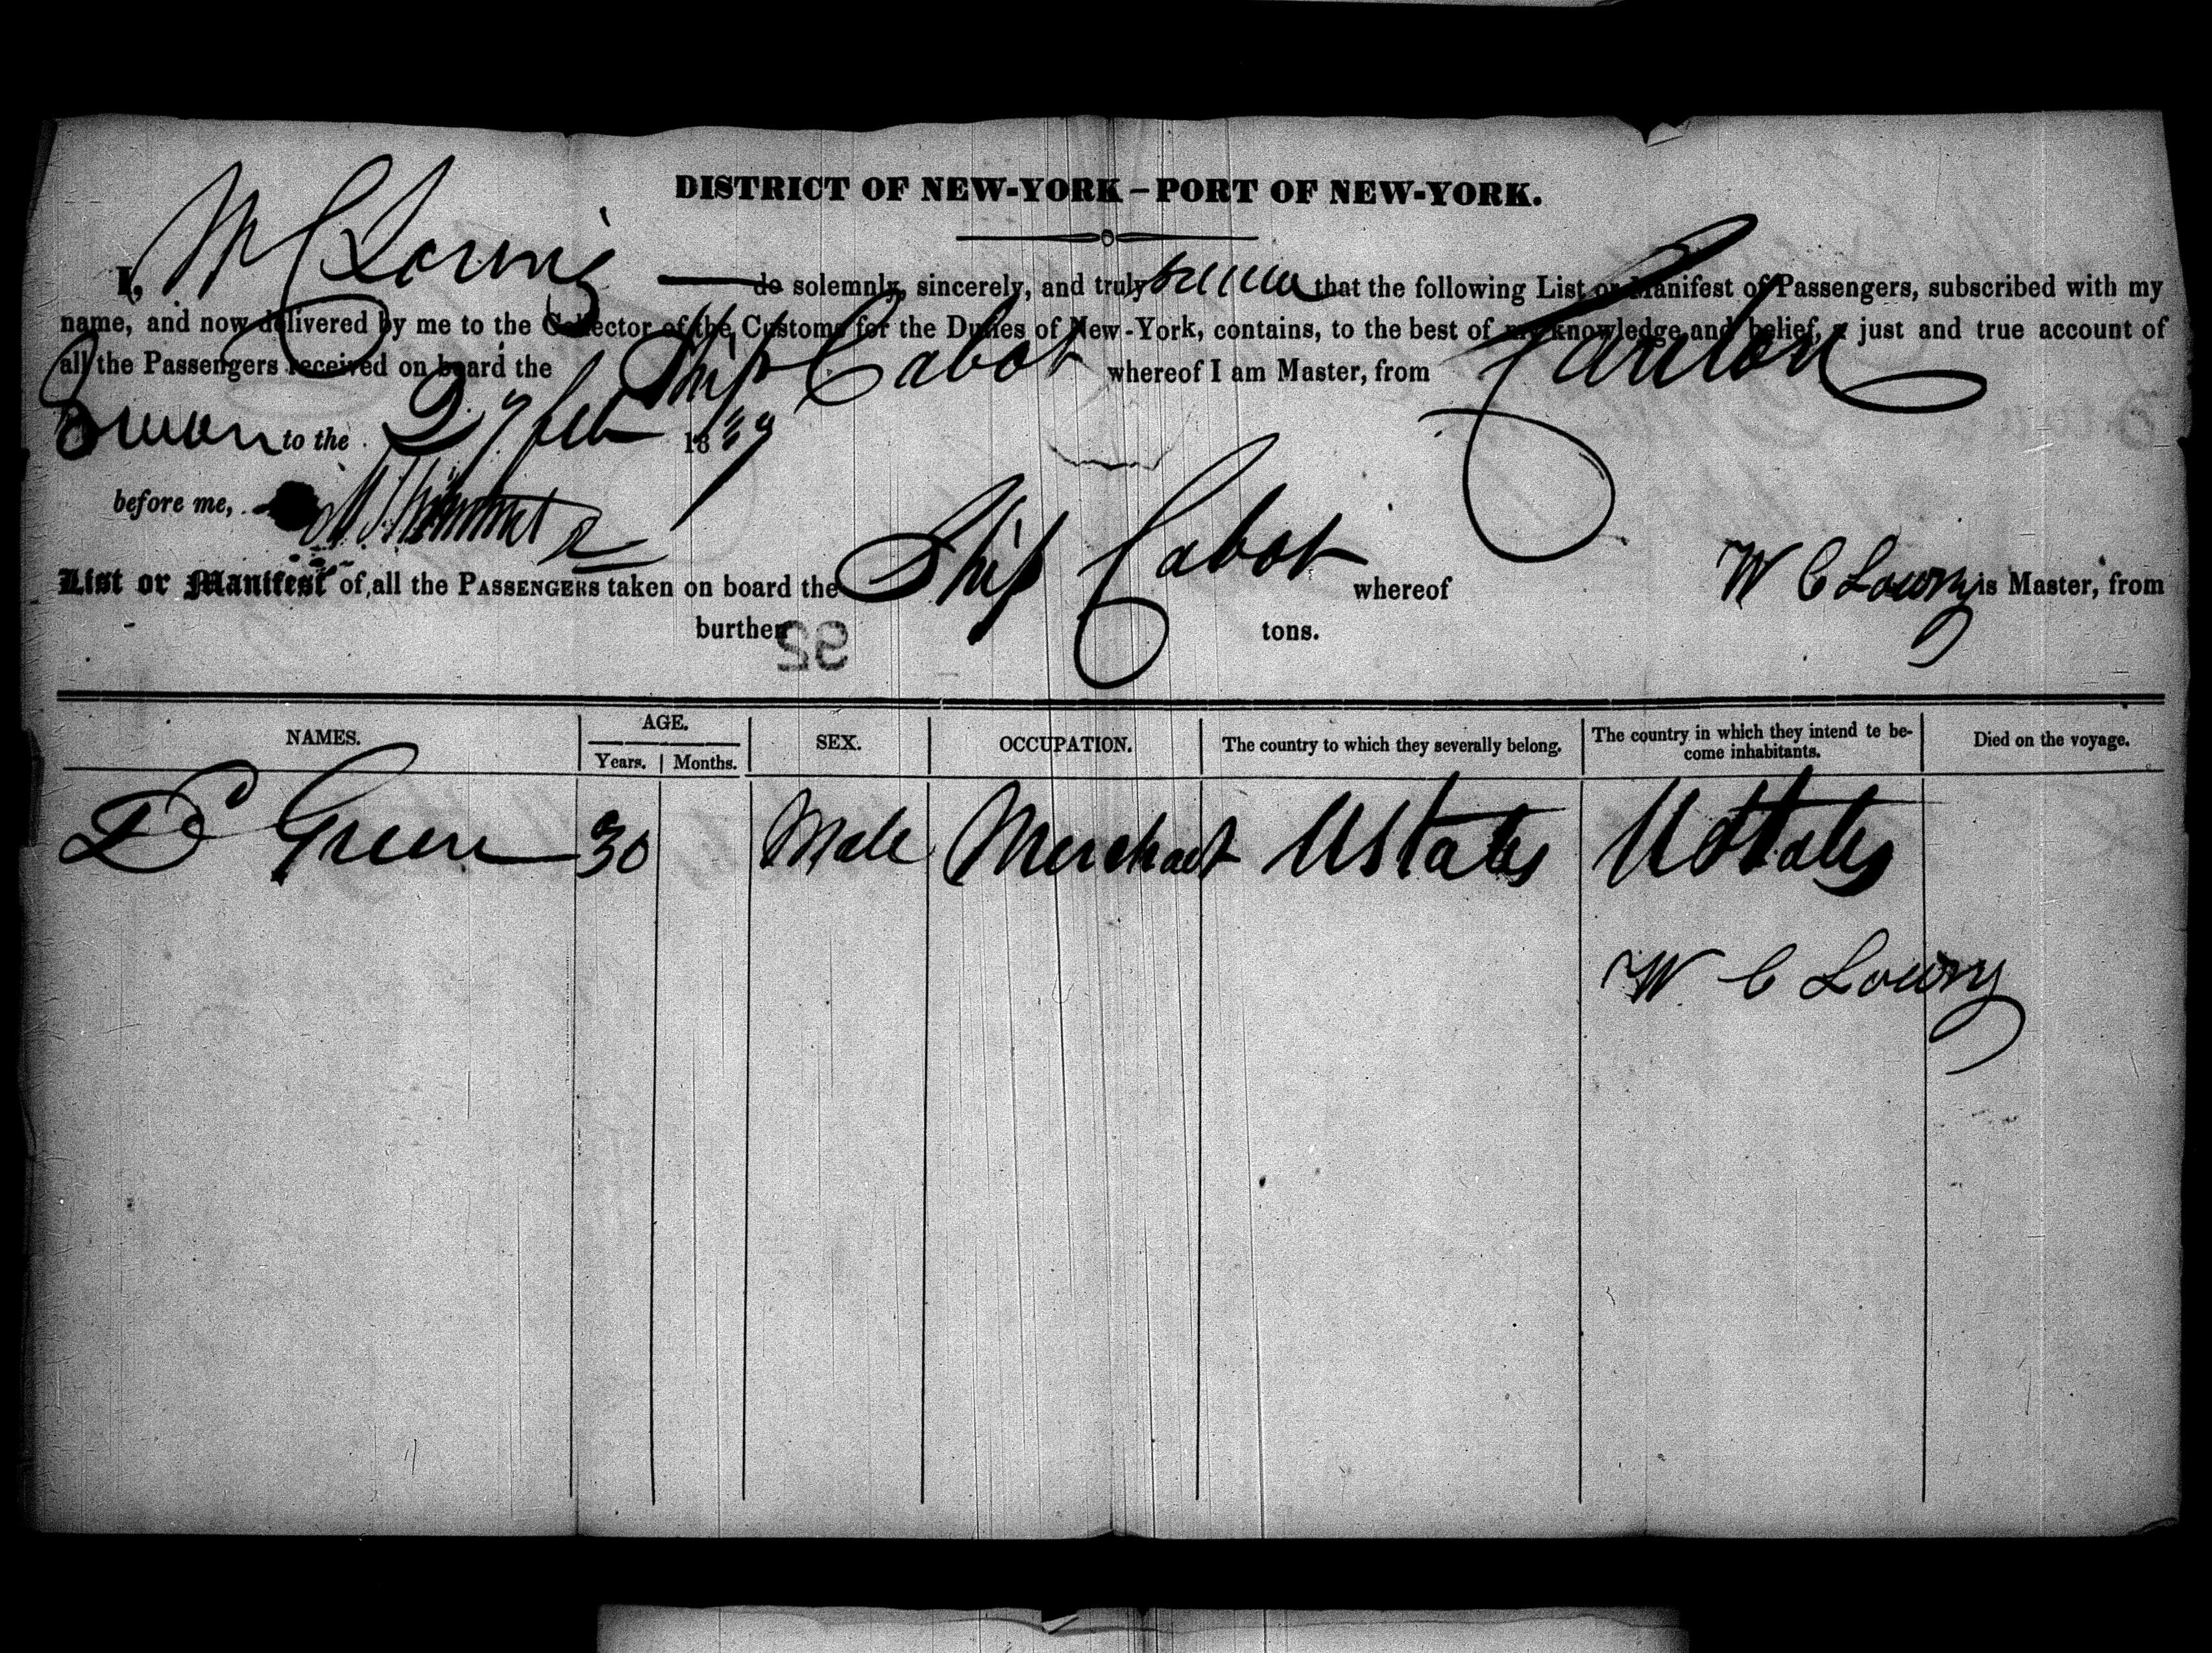 DISTRICT OF NEW-YORK – PORT OF NEW-YORK.
I, W C Lowry do solemnly, sincerely, and truly swear that the following List or Manifest of Passengers, subscribed with my
name, and now delivered by me to the Collector of the Customs for the Duties of New-York, contains, to the best of my knowledge and belief, a just and true account of
all the Passengers received on board the Ship Cabot whereof I am Master, from Canton
Sworn to the 27 feb 1839
before me,
List or Manifest of, all the PASSENGERS taken on board the Ship Cabot whereof W C Lowry is Master, from
burthen 92 tons.
NAMES. AGE. SEX. OCCUPATION. The country to which they severally belong. The country in which they intend to be- Died on the voyage.
come inhabitants.
Years. Months.
Green 30 Male Merchant UStates UStates
W C Lowry